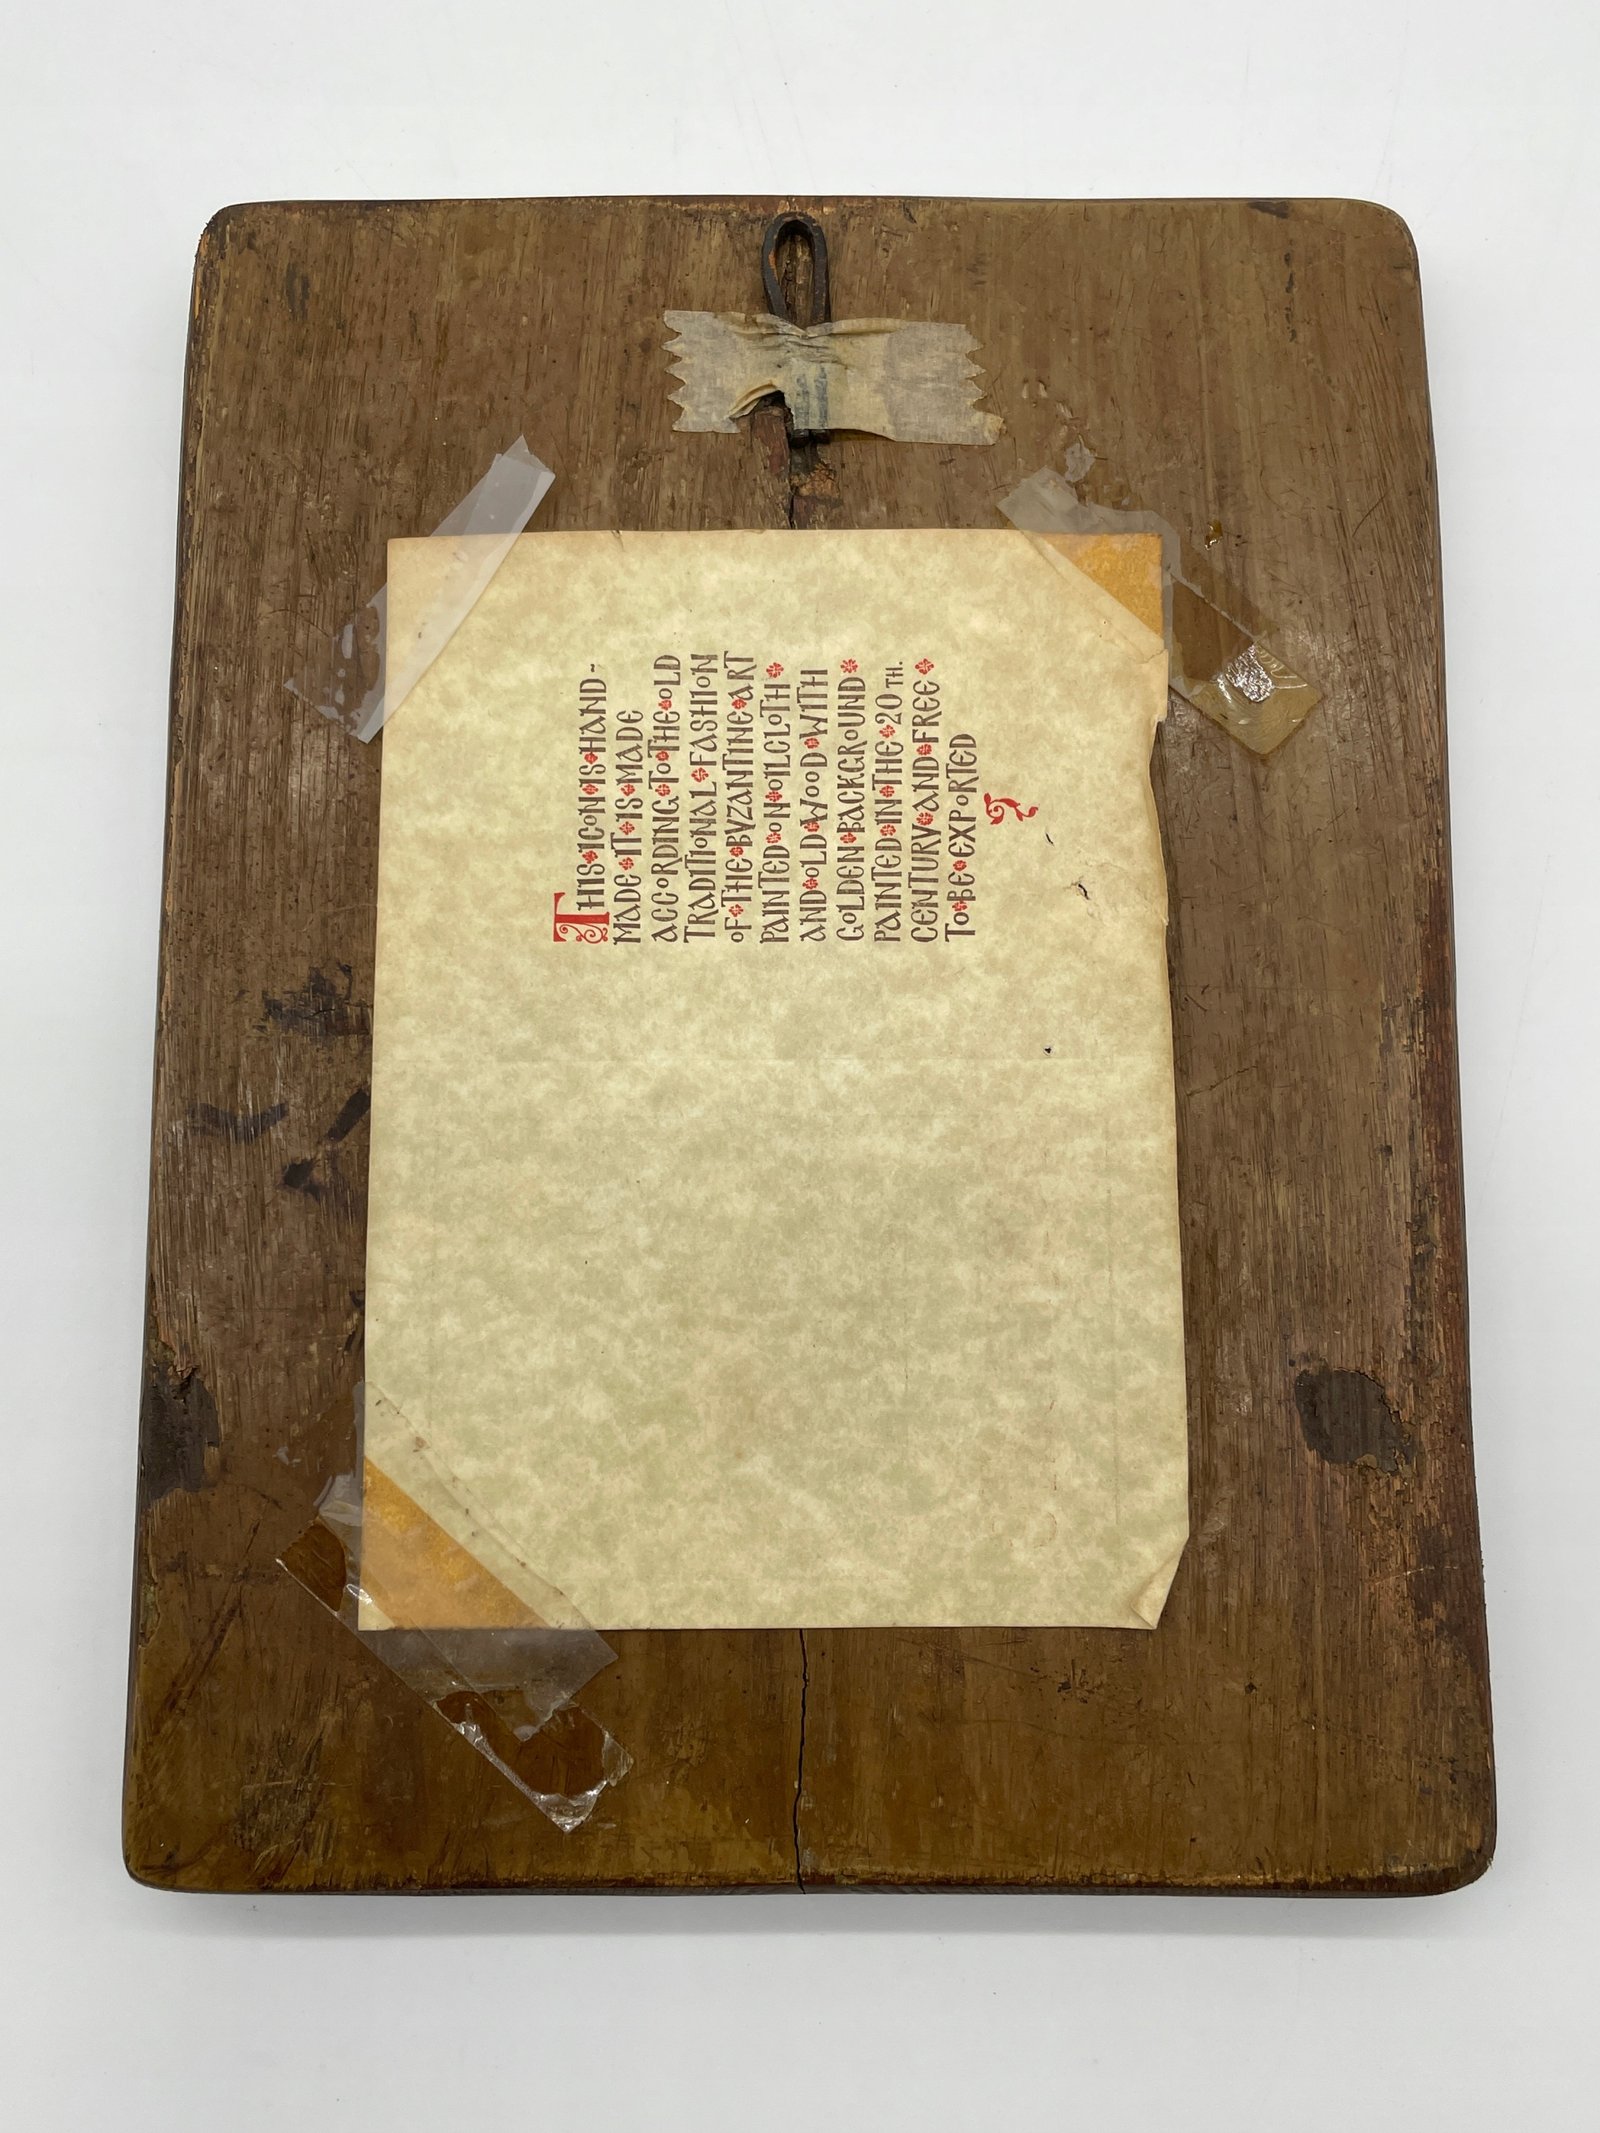 THIS·ICON·IS·HAND-
MADE·IT·IS·MADE
ACCORDING·TO·THE·OLD
TRADITIONAL·FASHION
OF·THE·BYZANTINE·ART
PAINTED·ON·OILCLOTH·
AND·OLD·WOOD·WITH
GOLDEN·BACKGROUND·
PAINTED·IN·THE·20TH.
CENTURY·AND·FREE·
TO·BE·EXPORTED